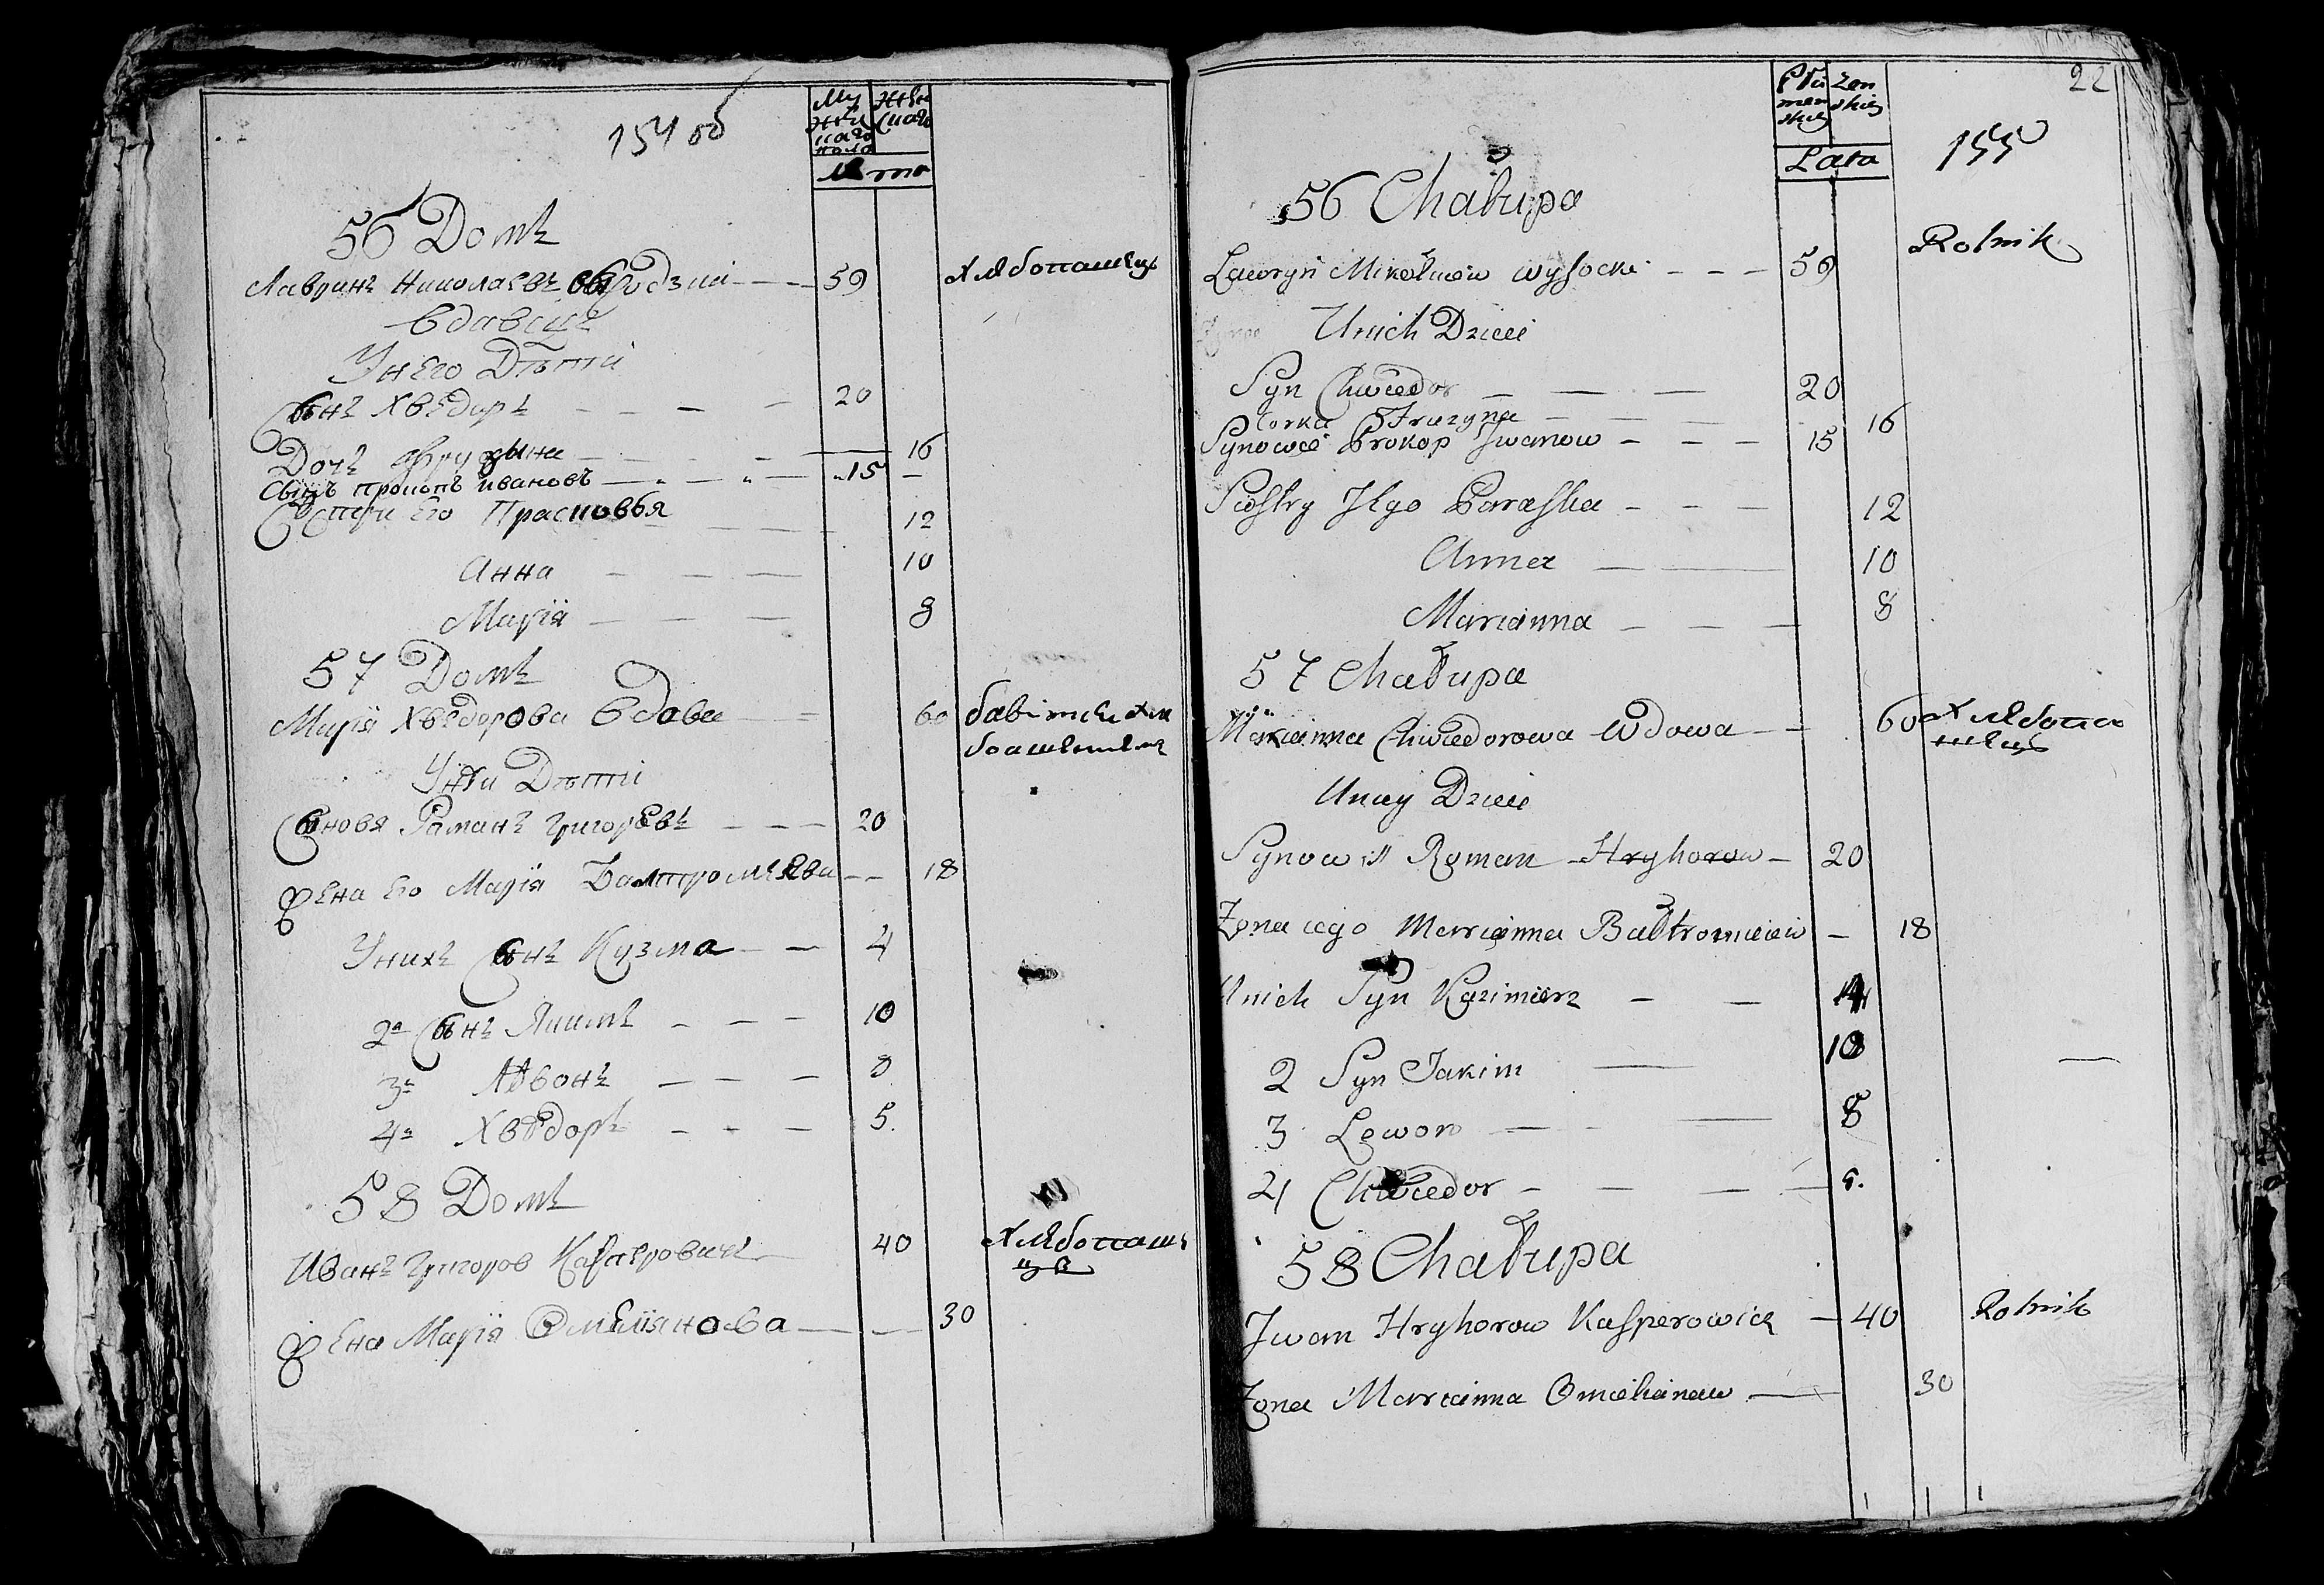 154 об
Му
жес
каго
пола
Женс
скаго
Лета
56 Домъ
Лавринъ Николаевъ 59
Хлебопашецъ
Вдавецъ
У Него Дѣти
Сынъ Хведиръ — — — 20
Дочъ Фрузына — — — 16
Сынъ Прокопъ Ивановъ — — — 15
Сестри Его Прасковья — — 12
Анна — — — 10
Марія — — — 8
57 Домъ
Марія Хведорова Вдава — 60
У Неи Дѣти
Сыновя Раманъ Григоревъ — — — 20
Жена Его Марія Балтромеева — — 18
У нихъ Сынъ Кузма — — 4
2й Сынъ Якимъ — — — 10
3й Лявонъ — — — 8
4й Хведоръ — — — 5.
58 Домъ
Иванъ Григоров Каспировичъ — 40
Хлебопаше
цъ
Жена Марія Омелiянова — — 30
22
155
Płci
men
skiej
żen
skiej
Lata
56 Chałupa
Ławryn Mikołaiow Wysocki — — — 59
Rolnik
Unich Dzieci
Syn Chwiedor — — — 20
Corka Fruzyna — — 16
Synowiec Prokop Iwanow — — — 15
Siostry Jego Paraska — — — 12
Anna — — 10
Marianna — — — 8
57 Chałupa
Marianna Chwiedorowa Wdowa — — 60
Хлебопа
шецъ
Uniey Dzieci
Synowie Roman Hryhorow — 20
Żona iego Marianna Bałtromieiow — 18
Unich Syn Kazimierz — — 4
2 Syn Jakim — 10
3 Lewon — — — 8
4 Chwiedor — — — — 5.
58 Chałupa
Iwan Hryhorow Kasperowicz — 40
Rolnik
Żona Marianna Omelianow — 30